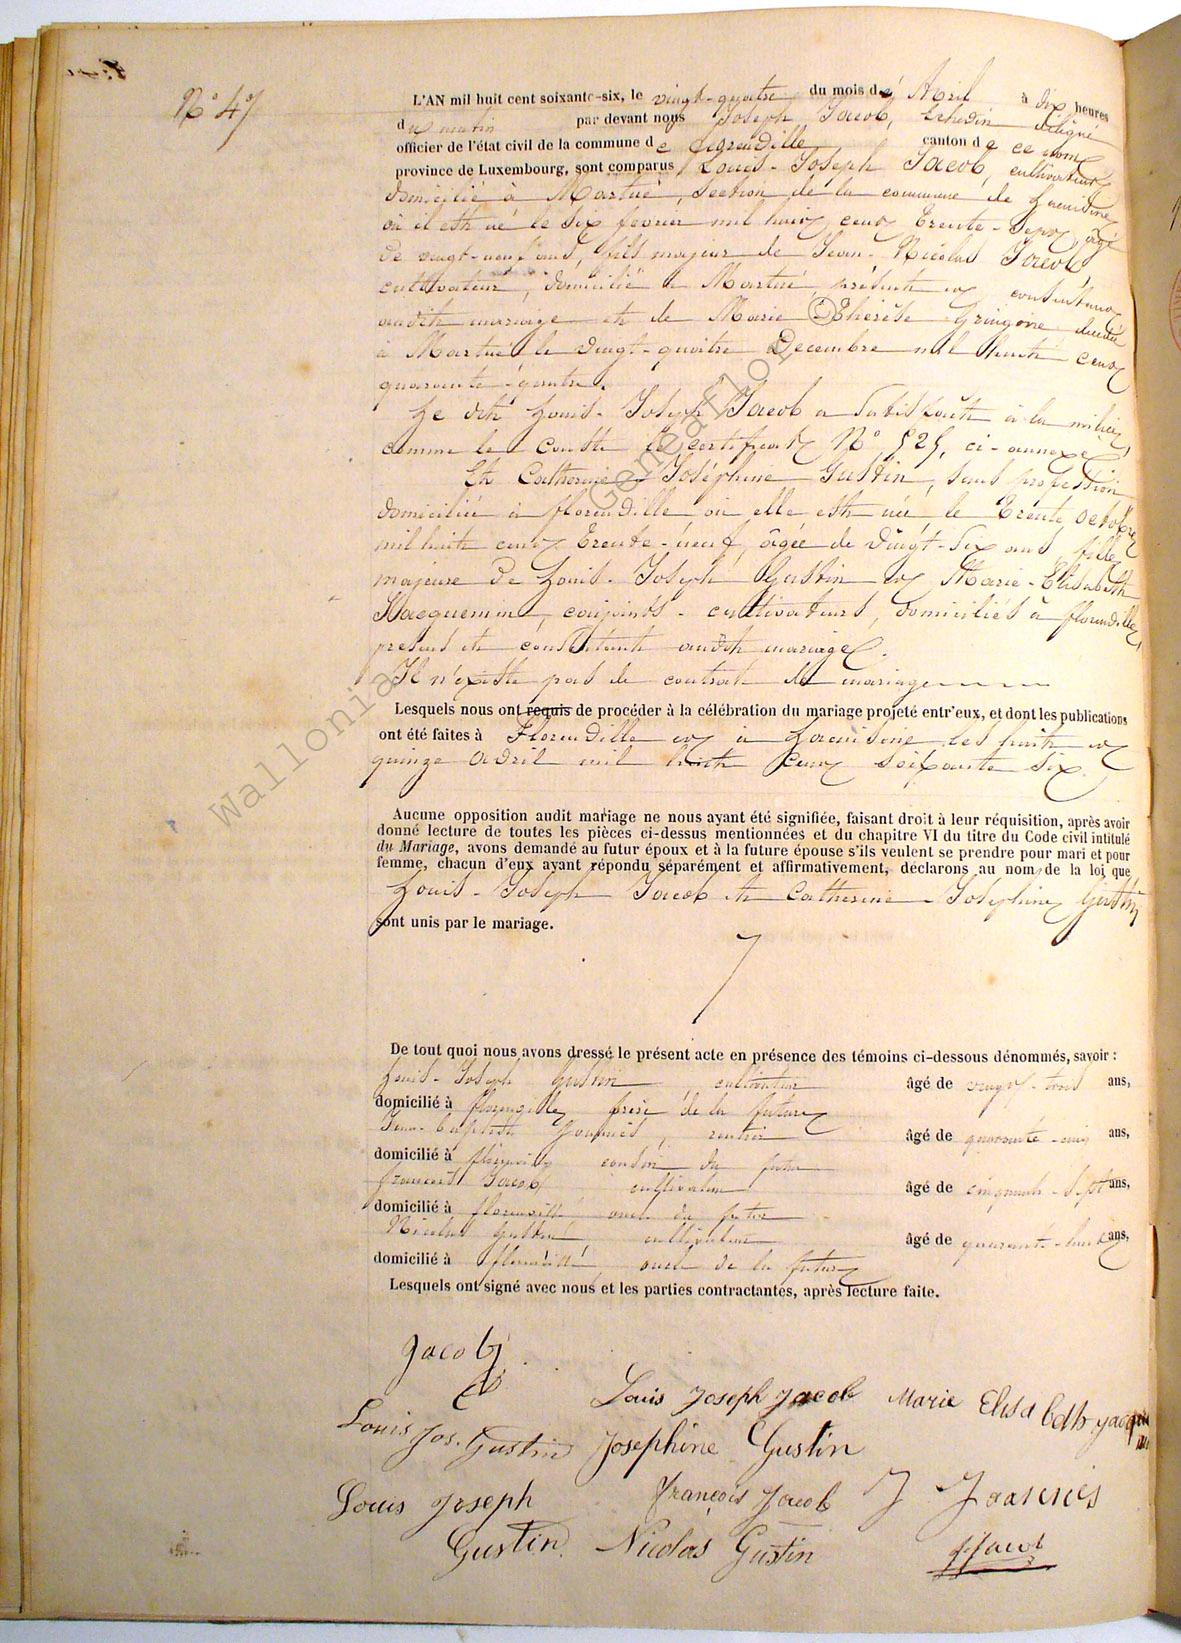 N° 47
L'AN mil huit cent soixante-six, le vingt-quatre du mois d'Avril à dix heures
du matin par devant nous Joseph Jacob, Echevin délégué
officier de l'état civil de la commune de canton de ce nom
province de Luxembourg, sont comparus Louis-Joseph Jacob, cultivateur
domicilié à Martué, section de la commune de Lacuisine
où il est né le six février mil huit cent trente-sept, âgé
de vingt-neuf ans, fils majeur de Jean-Nicolas Jacob
cultivateur, domicilié à Martué, présent et consentant
audit mariage et de Marie Thérèse Gringoire décédée
à Martué le vingt-quatre Décembre mil huit cent
quarante-quatre.
Le dit Louis-Joseph Jacob a satisfait à la milice
comme le conste le certificat N° 525, ci-annexé
Et Catherine Joséphine Gustin, sans profession
domiciliée à florenville où elle est née le trente octobre
mil huit cent trente-neuf, âgée de vingt-six ans, fille
majeure de Louis-Joseph Gustin et Marie-Elisabeth
Jacquemin, conjoints-cultivateurs, domiciliés à florenville,
present et consentant audit mariage.
Il n'existe pas de contrat de mariage
Lesquels nous ont requis de procéder à la célébration du mariage projeté entr'eux, et dont les publications
ont été faites à Florenville et à Lacuisine les huit et
quinze avril mil huit cent soixante six.
Aucune opposition audit mariage ne nous ayant été signifiée, faisant droit à leur réquisition, après avoir
donné lecture de toutes les pièces ci-dessus mentionnées et du chapitre VI du titre du Code civil intitulé
du Mariage, avons demandé au futur époux et à la future épouse s'ils veulent se prendre pour mari et pour
femme, chacun d'eux ayant répondu séparément et affirmativement, déclarons au nom de la loi que
Louis-Joseph Jacob et Catherine-Joséphine Gustin
sont unis par le mariage.
De tout quoi nous avons dressé le présent acte en présence des témoins ci-dessous dénommés, savoir :
Louis-Joseph Gustin, cultivateur âgé de vingt-trois ans,
domicilié à florenville frère de la future
Jean-baptiste, rentier âgé de quarante-cinq ans,
domicilié à florenville cousin du futur
françois Jacob cultivateur âgé de cinquante-sept ans,
domicilié à florenville oncle du futur
Nicolas Gustin cultivateur âgé de quarante-huit ans,
domicilié à florenville oncle de la future
Lesquels ont signé avec nous et les parties contractantes, après lecture faite.
Jacob
Louis Joseph Jacob Marie Elisabeth
Louis Jos. Gustin Josephine Gustin
Louis Joseph François Jacob J Joannès
Gustin Nicolas Gustin Jacob
Wallonia Geneaflor